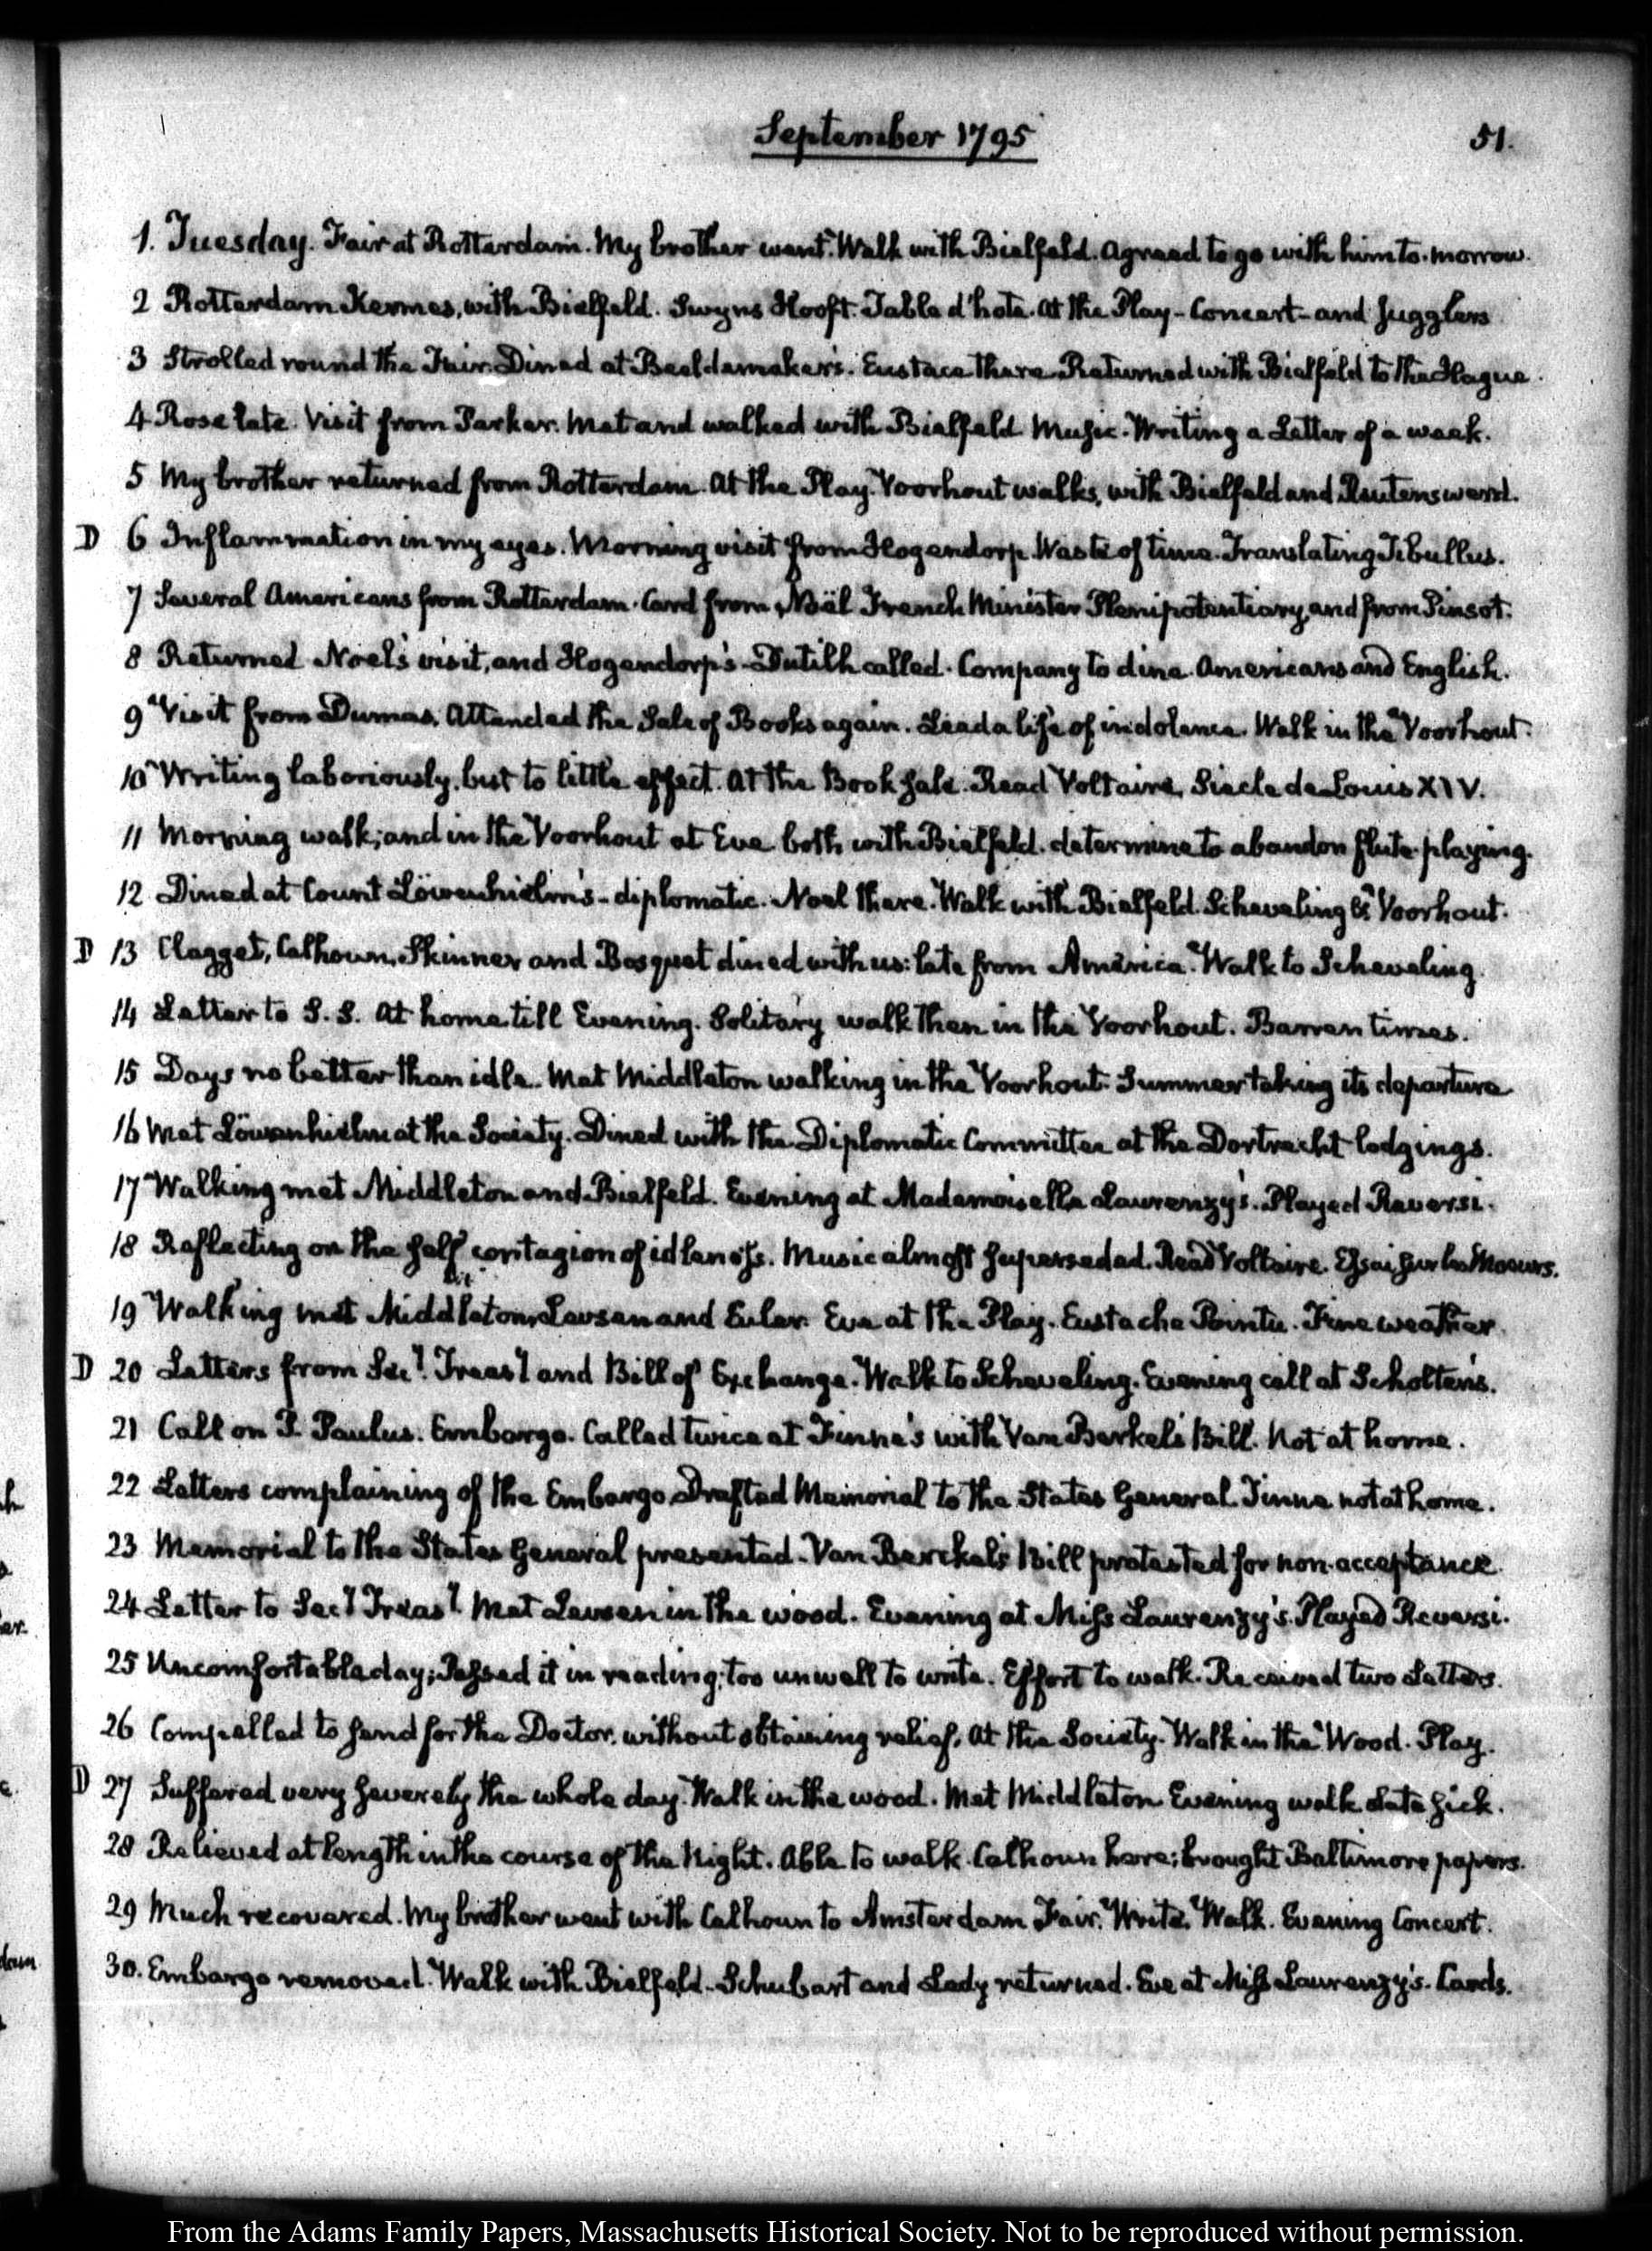 September 1795
51.
1. Tuesday. Fair at Rotterdam. My brother went. Walk with Bielfeld. Agreed to go with him to-morrow.
2 Rotterdam Kermes, with Bielfeld. Swyns Hooft. Table d'hote. At the Play - Concert - and Jugglers
3 Strolled round the Fair. Dined at Beeldemaker's. Eustace there. Returned with Bielfeld to the Hague.
4 Rose late. Visit from Parker. Met and walked with Bielfeld. Music. Writing a Letter of a week.
5 My brother returned from Rotterdam. At the Play. Voorhout walks, with Bielfeld and Reutenswerd.
D 6 Inflammation in my eyes. Morning visit from Hogendorp. Waste of time. Translating Tibullus.
7 Several Americans from Rotterdam. Card from Noël French Minister Plenipotentiary, and from Pinsot.
8 Returned Noel's visit, and Hogendorp's - Dutilh called. Company to dine. Americans and English.
9 Visit from Dumas. Attended the Sale of Books again. Lead a life of indolence. Walk in the Voorhout.
10 Writing laboriously, but to little effect. At the Book sale. Read Voltaire, Siecle de Louis XIV.
11 Morning walk; and in the Voorhout at Eve both with Bielfeld. determine to abandon flute playing.
12 Dined at Count Löwenhielm's - diplomatic. Noel there. Walk with Bielfeld. Scheveling & Voorhout.
D 13 Clagget, Calhoun, Skinner and Bosquet dined with us: late from America. Walk to Scheveling.
14 Letter to S. S. At home till Evening. Solitary walk then in the Voorhout. Barren times.
15 Days no better than idle. Met Middleton walking in the Voorhout. Summer taking its departure
16 Met Löwenhielm at the Society. Dined with the Diplomatic Committee at the Dortrecht lodgings.
17 Walking met Middleton and Bielfeld. Evening at Mademoiselle Laurenzy's. Played Reversi.
18 Reflecting on the self contagion of idleness. Music almost superseded. Read Voltaire. Essai sur les Moeurs.
19 Walking met Middleton, Levsen and Euler. Eve at the Play. Eustache Pointu. Fine weather.
D 20 Letters from Secy. Treasy and Bill of Exchange. Walk to Scheveling. Evening call at Scholten's.
21 Call on P. Paulus. Embargo. Called twice at Tinne's with Van Berkel's Bill. Not at home.
22 Letters complaining of the Embargo. Drafted Memorial to the States General. Tinne not at home.
23 Memorial to the States General presented. Van Berckel's Bill protested for non-acceptance.
24 Letter to Secy Treasy. Met Levsen in the wood. Evening at Miss Laurenzy's. Played Reversi.
25 Uncomfortable day; Passed it in reading; too unwell to write. Effort to walk. Received two Letters.
26 Compelled to send for the Doctor, without obtaining relief. At the Society. Walk in the Wood. Play.
D 27 Suffered very severely the whole day. Walk in the wood. Met Middleton. Evening walk. Late sick.
28 Relieved at length in the course of the Night. Able to walk. Calhoun here; brought Baltimore papers.
29 Much recovered. My brother went with Calhoun to Amsterdam Fair. Write. Walk. Evening Concert.
30. Embargo removed. Walk with Bielfeld. Schubart and Lady returned. Eve at Miss Laurenzy's. Cards.
From the Adams Family Papers, Massachusetts Historical Society. Not to be reproduced without permission.